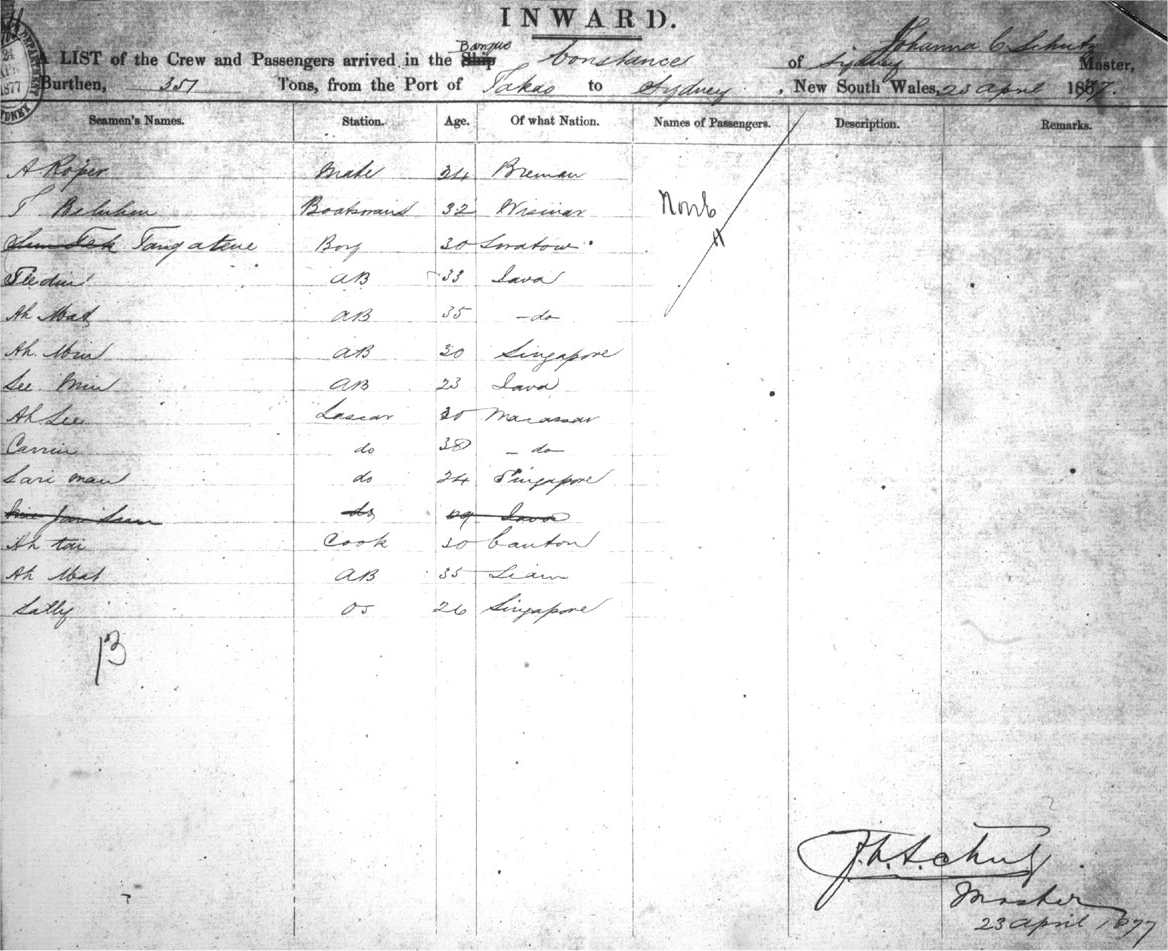 INWARD.
A LIST of the Crew and Passengers arrived in the Ship Barque Constance of Sydney Johanna C. Schutz Master,
Burthen, 351 Tons, from the Port of Takao to Sydney, New South Wales, 23 April 1877.
Seamen's Names. Station. Age. Of what Nation. Names of Passengers. Description. Remarks.
A Roper Mate 24 Breman
T 32 Wismar None
Boy 30
33 Java
Ah Mat AB 35 – do –
Ah Min AB 30 Singapore
See Min AB 23 Java
Ah Lee Lascar 30 Macassar
Carrim do 38 – do –
Sari man do 24 Singapore
do 29 Java
Ah tai Cook 30 Canton
Ah Mat AB 35 Siam
Sally OS 26 Singapore
13
J. C. Schutz
Master
23 April 1877